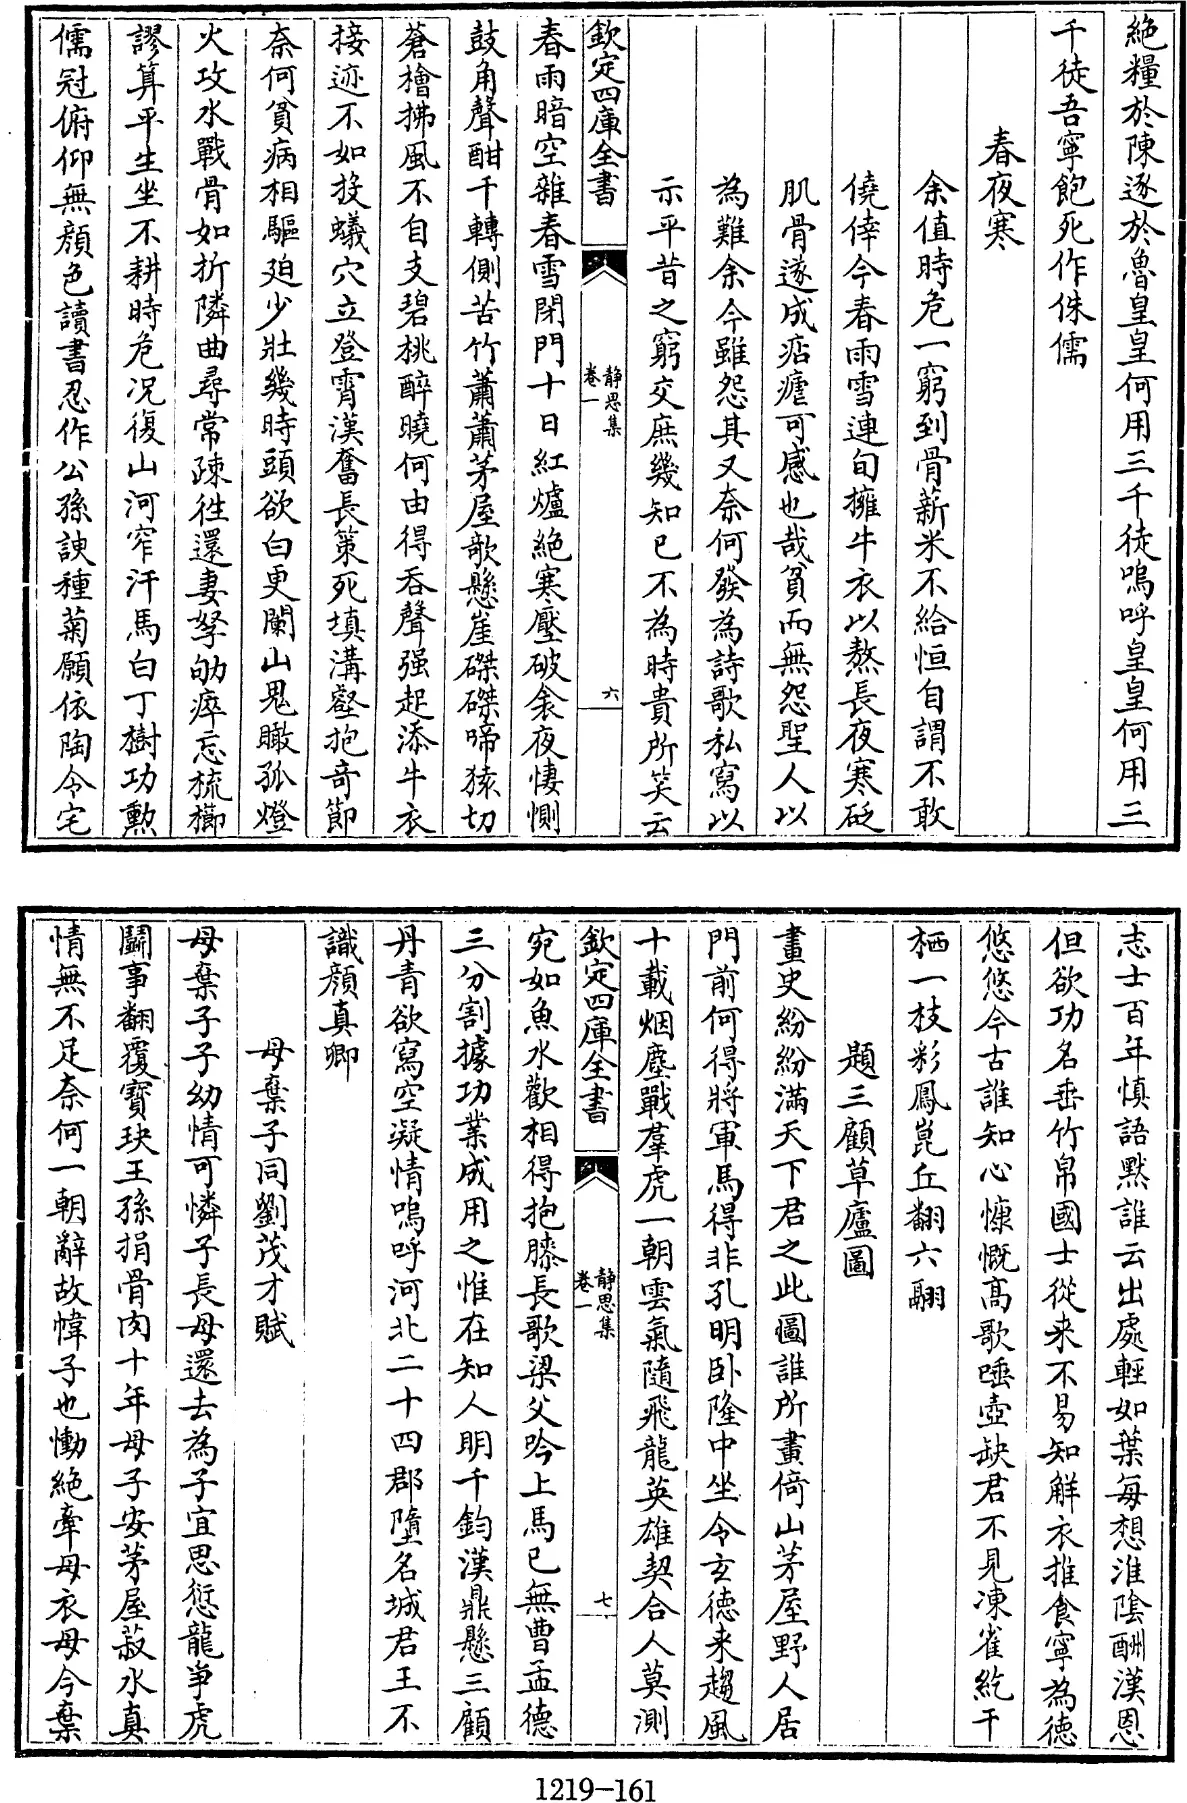 絶糧於陳逐於魯皇皇何用三千徒嗚呼皇皇何用三
千徒吾寧飽死作侏儒
春夜寒
余值時危一窮到骨薪米不給恒自謂不敢
僥倖今春雨雪連旬擁牛衣以熬長夜寒砭
肌骨遂成痁瘧可感也哉貧而無怨聖人以
為難余今雖怨其又奈何發為詩歌私寫以
示平昔之窮交庶幾知已不為時貴所笑云
欽定四庫全書
静思集
卷一
六
春雨暗空雜春雪閉門十日紅爐絶寒壓破衾夜悽惻
鼓角聲酣千轉側苦竹蕭蕭茅屋歌懸崖磔磔啼猿切
蒼檜拂風不自支碧桃醉曉何由得吞聲强起添牛衣
接迹不如投蟻穴立登霄漢奮長策死填溝壑抱奇節
奈何貧病相驅廹少壯幾時頭欲白更闌山鬼瞰孤燈
火攻水戰骨如折隣曲尋常疎徃還妻孥劬瘁忘梳櫛
謬算平生坐不耕時危况復山河窄汗馬白丁樹功勲
儒冠俯仰無顔色讀書忍作公孫諛種菊願依陶令宅
志士百年慎語黙誰云出處輕如葉每想淮隂酬漢恩
但欲功名垂竹帛國士從来不易知解衣推食寧為德
悠悠今古誰知心慷慨髙歌唾壺缺君不見凍雀紇干
栖一枝彩鳳崑丘翻六翮
題三顧草廬圖
畫史紛紛滿天下君之此圖誰所畫倚山茅屋野人居
門前何得將軍馬得非孔明卧隆中坐令玄徳来趨風
十載烟塵戰羣虎一朝雲氣隨飛龍英雄契合人莫測
欽定四庫全書
静思集
卷一
七
宛如魚水歡相得抱膝長歌梁父吟上馬已無曹孟德
三分割據功業成用之惟在知人明千鈞漢鼎懸三顧
丹青欲寫空凝情嗚呼河北二十四郡墮名城君王不
識顔真卿
母棄子同劉茂才賦
母棄子子幼情可憐子長母還去為子宜思愆龍爭虎
鬭事翻覆寶玦王孫捐骨肉十年母子安茅屋菽水真
情無不足奈何一朝辭故幃子也慟絶牽母衣母今棄
1219-161